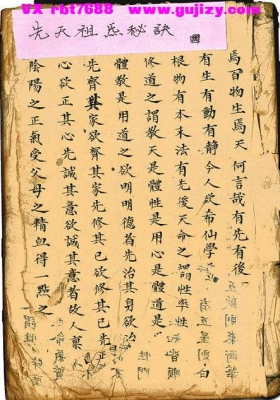 VX rbt7688 www.gujizy.com
先天祖炁秘訣
焉百物生焉天何言哉有先有後
有生有動有靜今人欲布仙學
根物有本末法有先後天命之謂性率性
修道之謂教天是體性是用心是體道是
體教是用道之欲明明德者先治其身欲治
先齊其家欲齊其家先修其己欲修其己先正
心欲正其心先誠其意欲誠其意者故人稟
陰陽之正氣受父母之精血得一點之